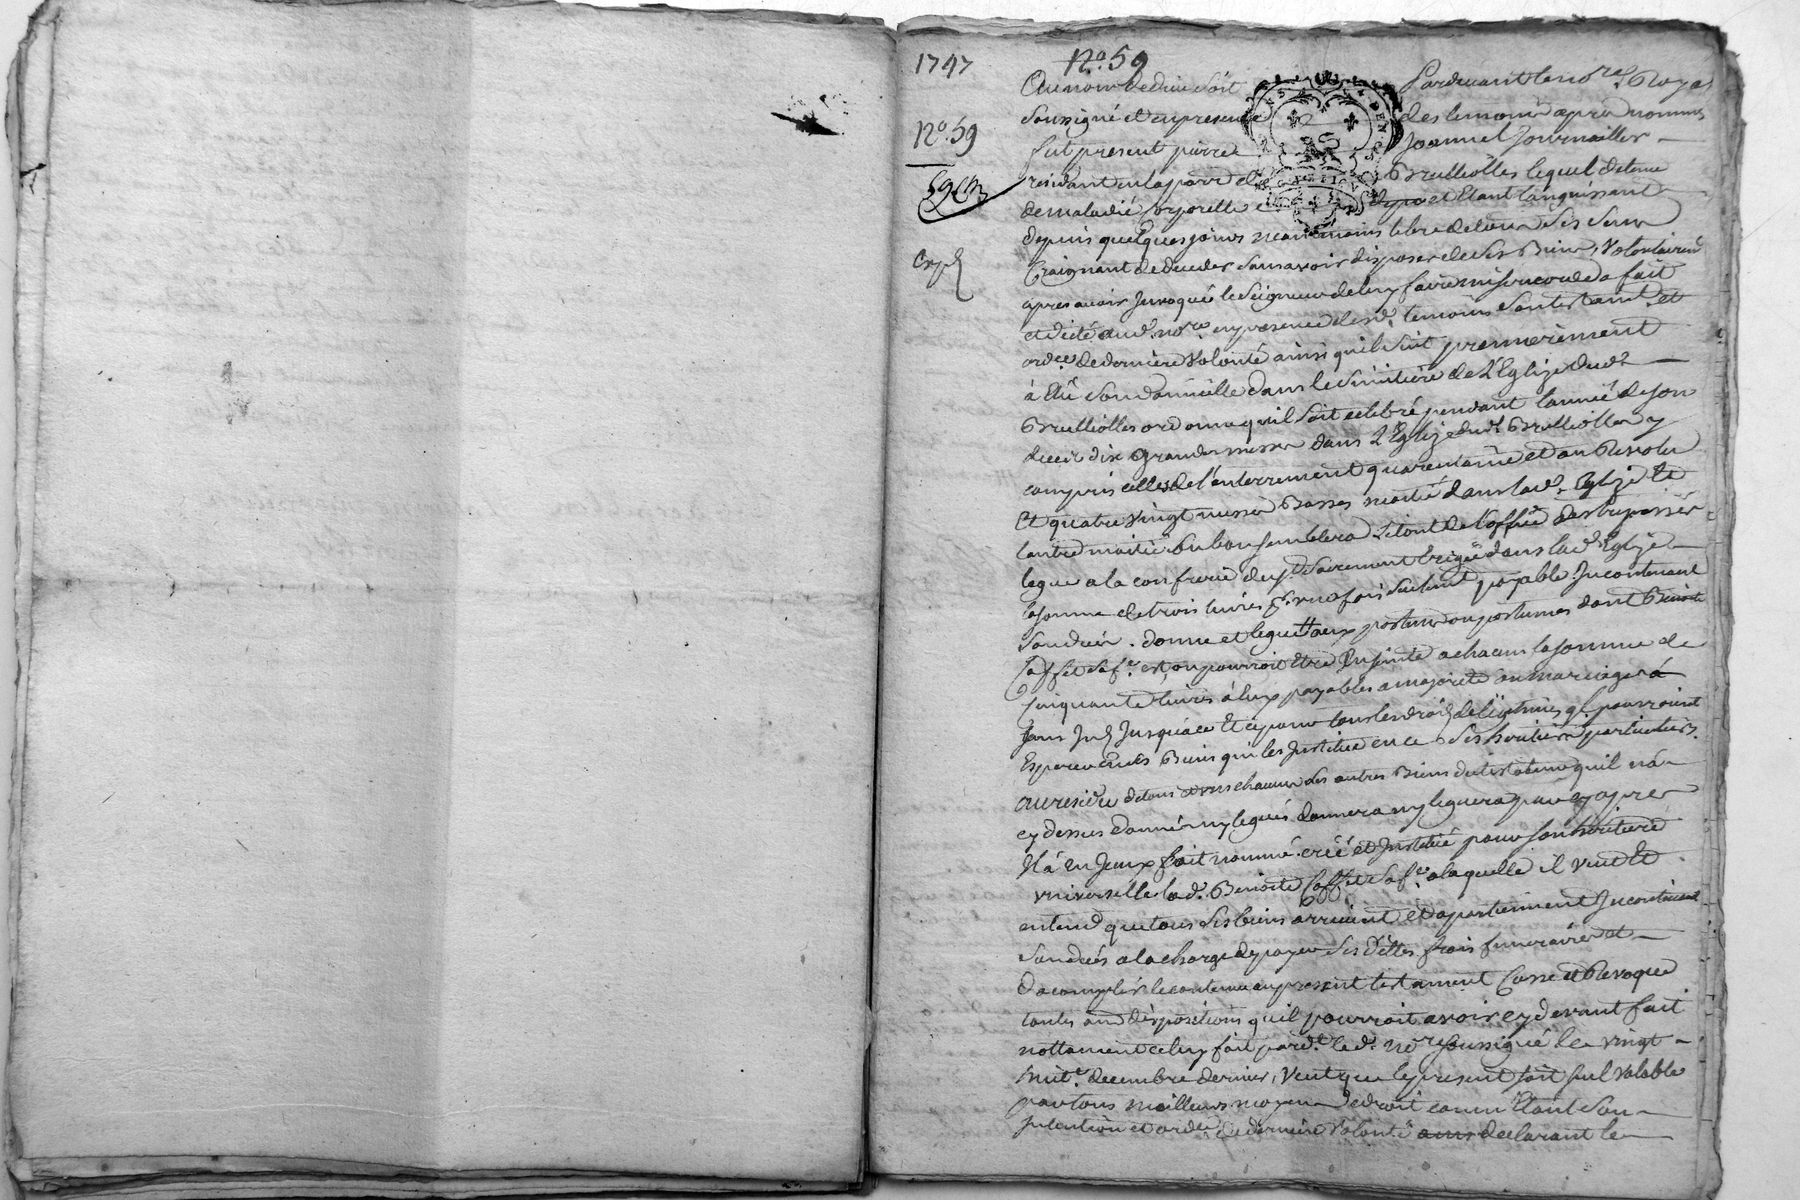 1747
No. 59
No. 59
Expé
Au nom de dieu soit Pardevant le nore. Royal
soussigné et en presence des temoins apres nommés
fut present pierre Joannel Journaillier
residant en la parr. de Brulliolles lequel detenu
de maladie corporelle et etant languissant
depuis quelques jours neanmoins libre de tous ses sens
Craignant de deceder sans avoir disposer de ses Biens, Volontairemt.
apres avoir Invoqué le Seigneur de luy faire misericorde a fait
et dicté aud. nore. en presence desd. temoins son testamt. et
ordce. de derniere Volonté ainsi quil suit premierement
à Elû son domicille dans le Simitière de L'Eglize dud.
Brulliolles ordonne qu'il soit celebré pendant l'année de son
decés dix Grandes messes dans L'Eglize dud. Brulliolles y
compris celles de l'enterrement quarentaine et an Revolu
Et quatre vingt messes Basses moitié dans lad. Eglize Et
l'autre moitié ou bon semblera Le tout de l'office des trepassés
legue a la confrerie du St. Sacrement Erigée dans lad. Eglize
la somme de trois livres pr. une fois seulemt. payable Incontinent
son decés. donne et legue aux postume ou postumes dont Benoite
Caffet sa fe. est, ou pourroit Etre Enceinte a chacun la somme de
Cinquante livres à eux payables a majorité ou mariage
sans Int. Jusqu'à ce Et ce pour tous les droits de legitimes qls. pourroient
Esperer en ses Biens qui les Institue en ce ses heritiers particuliers.
au residu de tous et uns chacuns ses autres Biens du testateur quil n'a
cy dessus donnés ny legués donnera ny leguera par cy apres
Il á En Iceux fait nommé créé et Institué pour son heritiere
universelle lad. Benoite Caffet sa fe. a laquelle il veut Et
entend que tous ses biens arrivent et apartiennent Incontinent
son decés a la charge de payer ses dettes frais funeraires et
d'acomplir le contenu au present testament Casse et Revoque
toutes aud. dispositions qu'il pourroit avoir cy devant fait
nottament celuy fait pard. led. nore soussigné le vingt
huit.e decembre dernier, Veut que le present soit seul valable
par tous meilleurs moyens de droit comme Etant son
Intention et ordce. de derniere volonté declarant le